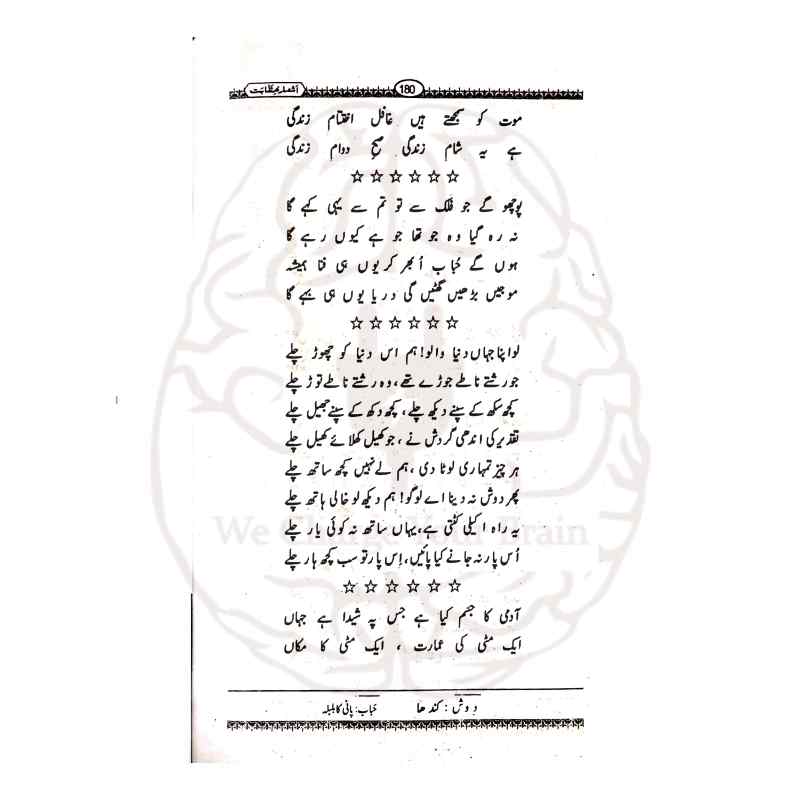 اشعارِ خطابت
180
موت کو سمجھتے ہیں غافل اختتام زندگی
ہے یہ شام زندگی صبحِ دوام زندگی
☆☆☆☆☆☆
پوچھو گے جو فلک سے تو تم سے یہی کہے گا
نہ رہ گیا وہ جو تھا جو ہے کیوں رہے گا
ہوں گے حُباب اُبھر کر یوں ہی فنا ہمیشہ
موجیں بڑھیں گھٹیں گی دریا یوں ہی بہے گا
☆☆☆☆☆☆
لو اپنا جہاں دنیا والو! ہم اس دنیا کو چھوڑ چلے
جو رشتے ناطے جوڑے تھے، وہ رشتے ناطے توڑ چلے
کچھ سکھ کے سپنے دیکھ چلے، کچھ دکھ کے سپنے جھیل چلے
تقدیر کی اندھی گردش نے، جو کھیل کھلائے کھیل چلے
ہر چیز تمہاری لوٹا دی، ہم لے نہیں کچھ ساتھ چلے
پھر دوش نہ دینا اے لوگو! ہم دیکھ لو خالی ہاتھ چلے
یہ راہ اکیلی کٹتی ہے، یہاں ساتھ نہ کوئی یار چلے
اُس پار نہ جانے کیا پائیں، اِس پار تو سب کچھ ہار چلے
☆☆☆☆☆☆
آدمی کا جسم کیا ہے جس پہ شیدا ہے جہاں
ایک مٹی کی عمارت ، ایک مٹی کا مکاں
دوش: کندھا حباب: پانی کا بلبلہ
We Change Your Brain